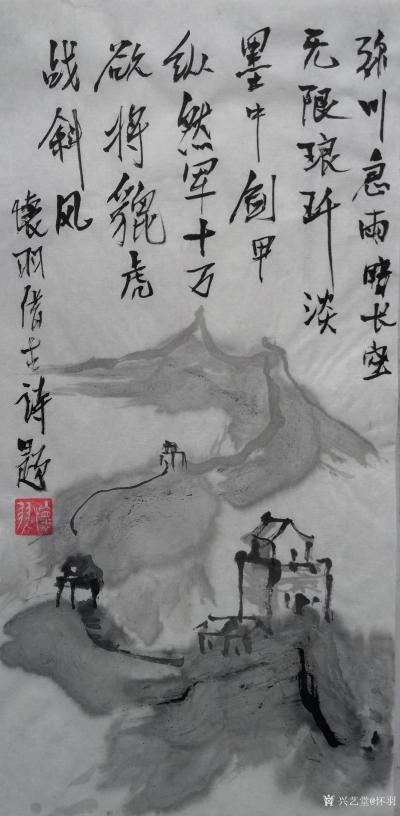 弥川急雨暗长空
无限琅玕淡
墨中剑甲
纵然军十万
欲将貔虎
战斜风
懷羽借古诗题
兴艺堂@怀羽